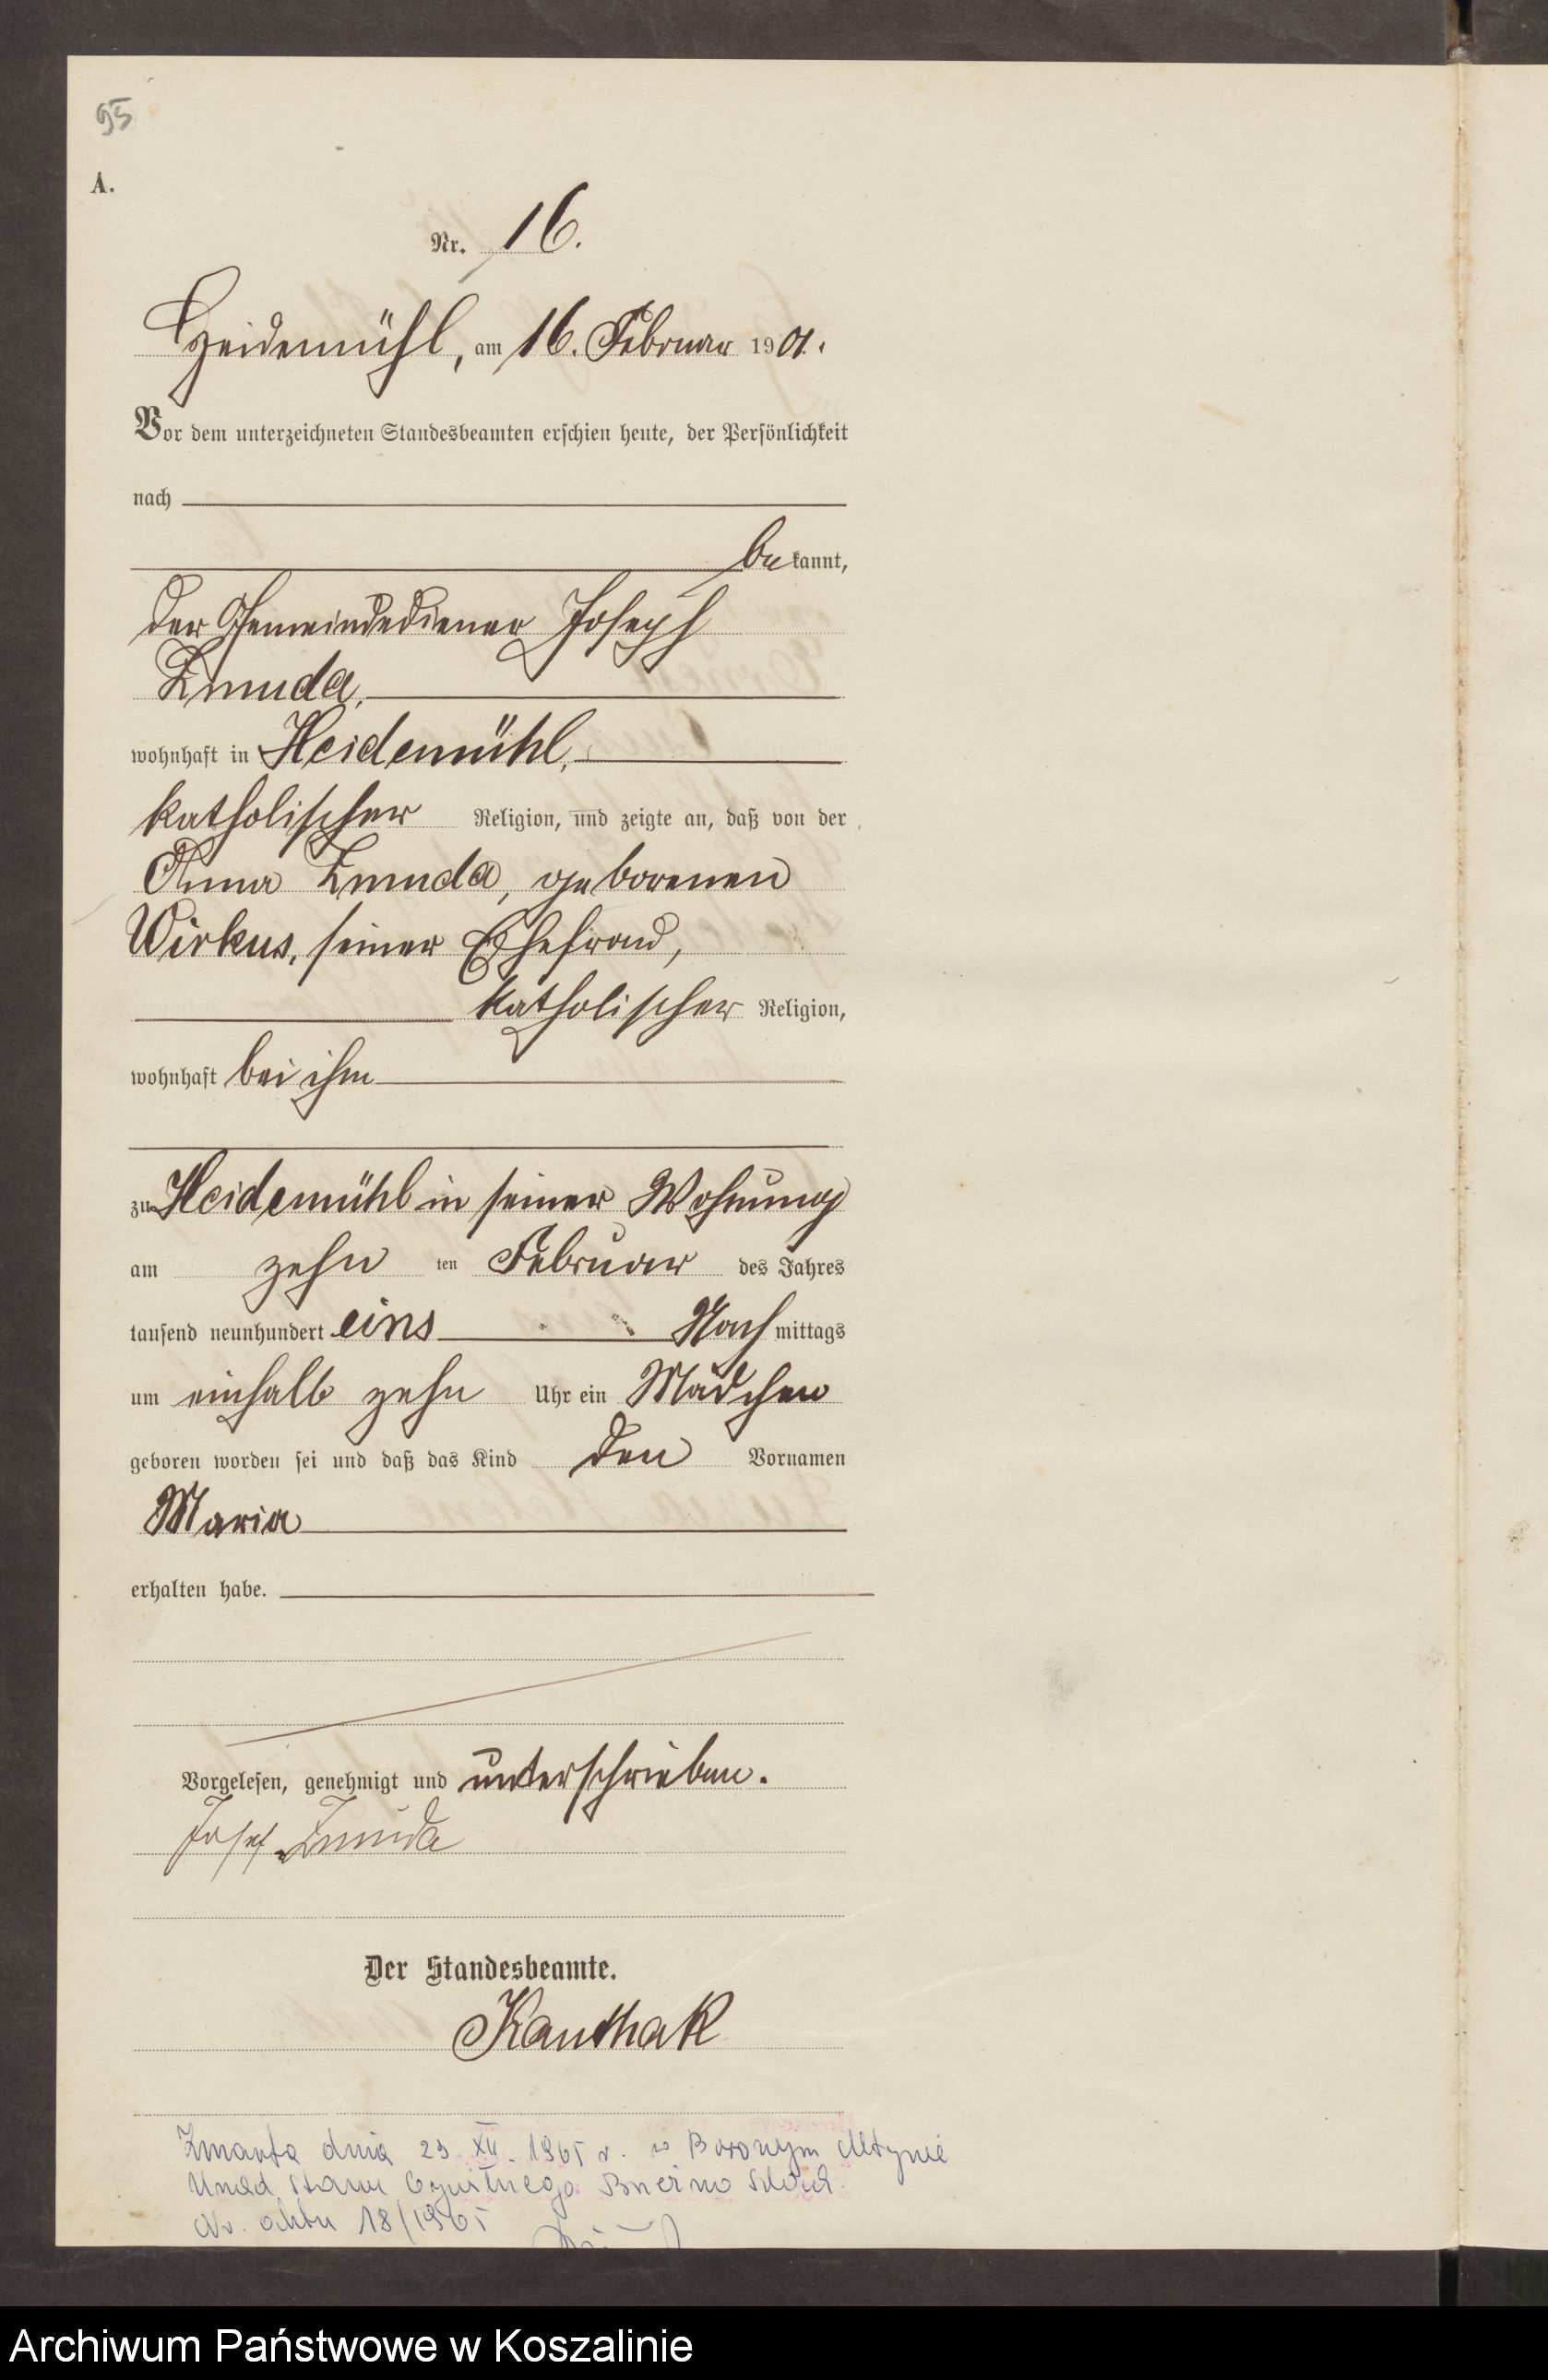 95
A.
Nr. 16.
Heidemühl, am 16. Februar 1901.
Vor dem unterzeichneten Standesbeamten erschien heute, der Persönlichkeit
nach
bekannt,
der Gemeindediener Joseph
Zmuda,
wohnhaft in Heidemühl,
katholischer Religion, und zeigte an, daß von der
Anna Zmuda, geborenen
Wirkus, seiner Ehefrau,
katholischer Religion,
wohnhaft bei ihm
zu Heidemühl in seiner Wohnung
am zehn ten Februar des Jahres
tausend neunhundert eins Nachmittags
um einhalb zehn Uhr ein Mädchen
geboren worden sei und daß das Kind den Vornamen
Maria
erhalten habe.
Vorgelesen, genehmigt und unterschrieben.
Josef Zmuda
Der Standesbeamte.
Kauthak
Zmarła dnia 29 XII. 1965 r. w Borowym Młynie
Urząd Stanu Cywilnego
Nr. aktu 18/1965
Archiwum Państwowe w Koszalinie